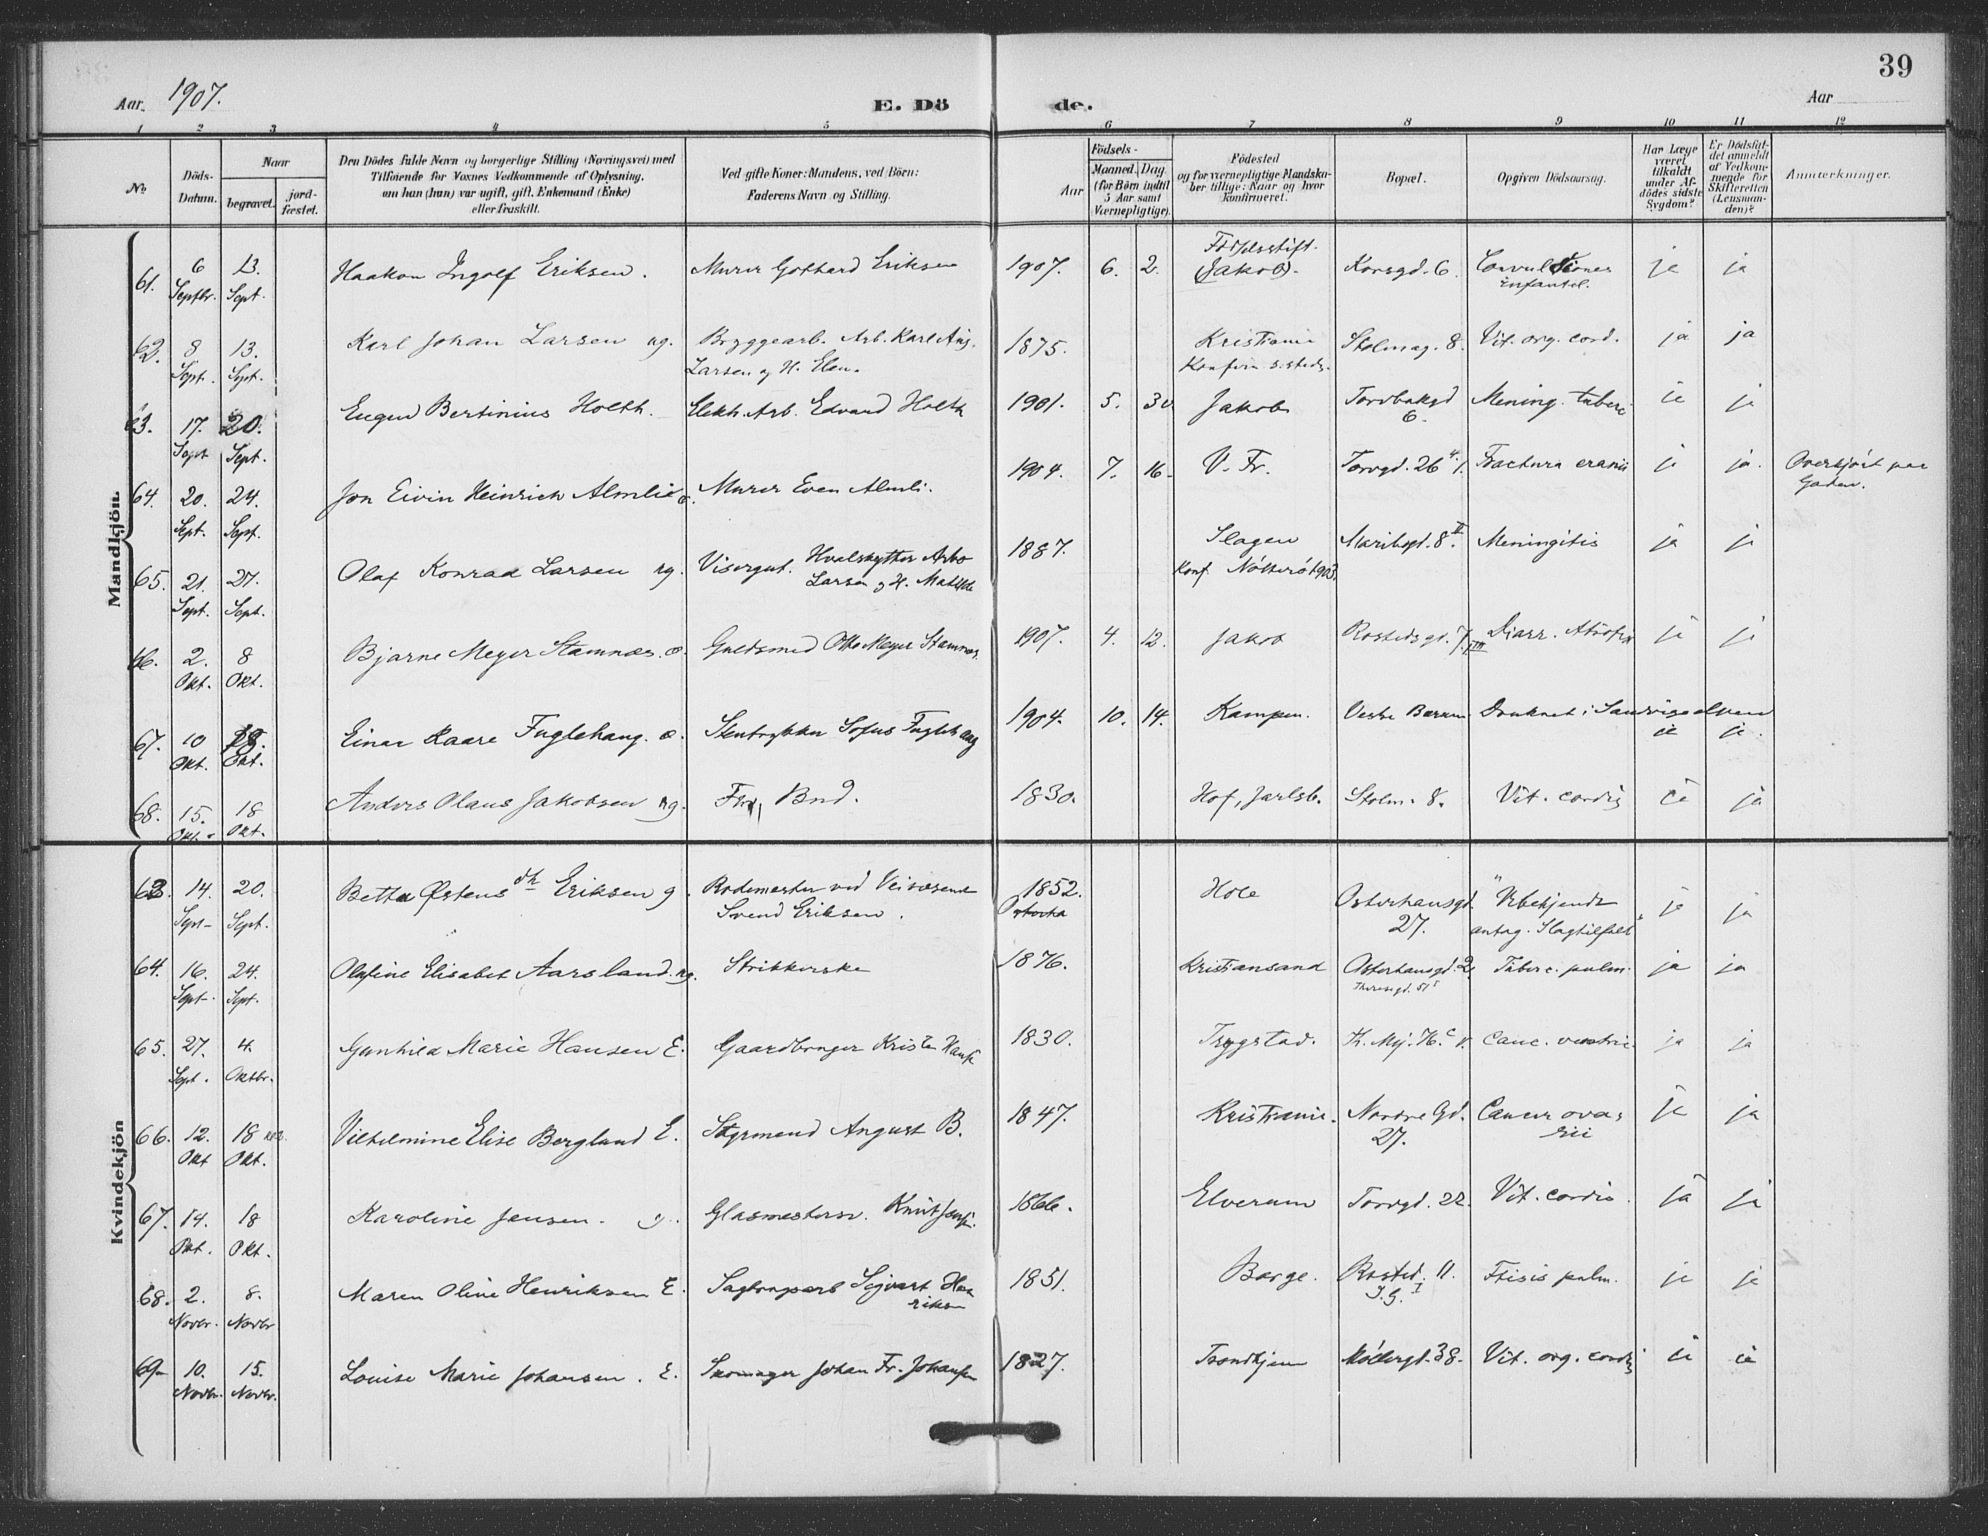 39
Aar. 1907. E. Dö de. Aar
1 2 3 4 5 6 7 8 9 10 11 12
No
Döds-Datum.
Naar
begravet.
jord-fæstet.
Den Dödes fulde Navn og borgerlige Stilling (Næringsvei) med
Tilföiende for Voxnes Vedkommende af Oplysning,
om han (hun) var ugift, gift, Enkemand (Enke)
eller fraskilt.
Ved gifte Koner: Mandens, ved Börn:
Faderens Navn og Stilling.
Födsels-
Aar
Maaned. Dag
(for Börn indtil
5 Aar samt
Værnepligtige).
Födested
og for værnepligtige Mandskaber tillige: Naar og hvor
konfirmeret.
Bopæl.
Opgiven Dödsaarsag.
Har Læge
været
tilkaldt
under Afdödes sidste
Sygdom?
Er Dödsfaldet anmeldt
af Vedkommende for
Skifteretten
(Lensmanden)?
Anmerkninger.
Mandkjön
61. 6 Septbr. 13. Sept. Haakon Ingolf Eriksen. Murer Gothard Eriksen 1907. 6. 2. Fødselsstift. (Jakob). Korsgd. 6. Convulsiones infantil. ja ja
62. 8 Sept. 13. Sept. Karl Johan Larsen ug. Bryggearb. Arb. Karl Aug. Larsen og H. Elen. 1875. Kristiania Konfirm. s. steds. Stolmag. 8. Vit. org. cord. ja ja
63. 17. Sept 20. Sept. Eugen Bertinius Holth. Elekt. Arb. Edvard Holth 1901. 5. 30 Jakob Torvbakgd 6. Mening. tuberc. ja ja
64. 20. Sept. 24. Sept. Jon Eivin Heinrich Almlie Murer Even Almli. 1904. 7. 16. V. Fr. Torvgd. 26 Fractura cranii ja ja. Overkjørt paa Gaden.
65. 21. Sept. 27. Sept. Olaf Konrad Larsen ug. Visergut. Hvalskytter Arbo Larsen og H. Matilde 1887. Slagen Konf Nøtterø 1903. Maribogd. 8 II. Meningitis ja ja
66. 2. Okt. 8 Okt. Bjarne Meyer Stamnæs. Guldsmed Otto Meyer Stamnæs. 1907. 4. 12. Jakob Rostedsgd. 7 Diarr. Atrofi ja ja
67. 10 Okt. Okt. Einar Kaare Fuglehaug. Stentrykker Sofus Fuglehaug 1904. 10. 14. Kampen. Vestre Bærum Druknet i Sandvigselven ja ja.
68. 15. Okt. 18 Okt. Anders Olaus Jakobsen ug. Fhv. Bud. 1830. Hof, Jarlsb. Stolm. 8. Vit. cordis ja ja
Kvindekjön
63. 14. Sept 20. Sept. Betta Østens dtr Eriksen g. Rodemester ved Veivæsenet Svend Eriksen. 1852. Hole Osterhausgd. 27. "Ubekjendt antag. Slagtilfæld" ja ja
64. 16. Sept. 24. Sept. Olefine Elisabet Aarsland. ug. Strikkerske 1876. Kristiansand Osterhausgd. 2. Theresegd. 51 Tuberc. pulm. ja ja
65. 27. Sept. 4. Oktbr. Gunhild Marie Hansen E. Gaardbruger Kristen Hansen 1830. Trygstad. K. Mj. H. Canc. ventric. ja ja
66. 12. Okt 18 Okt. Vilhelmine Elise Berglund E. Styrmand August B. 1847. Kristiania. Nordre Gd. 27. Cancer ovarii ja ja
67. 14. Okt. 18 Okt. Karoline Jensen. g. Glasmestersv. Knut Jensen. 1866. Elverum Torvgd. 22. Vit. cordis. ja ja
68. 2. Novbr. 8. Novbr Maren Oline Henriksen E. Sagbrugsarb Sigvart Henriksen 1851. Borge. Rosted. 11. I Ftisis pulm. ja ja
69 10. Novbr. 15. Novbr. Louise Marie Johansen. E. Skomager Johan Fr. Johansen 1827. Trondhjem Møllergd. 38. Vit. org. cordis ja ja